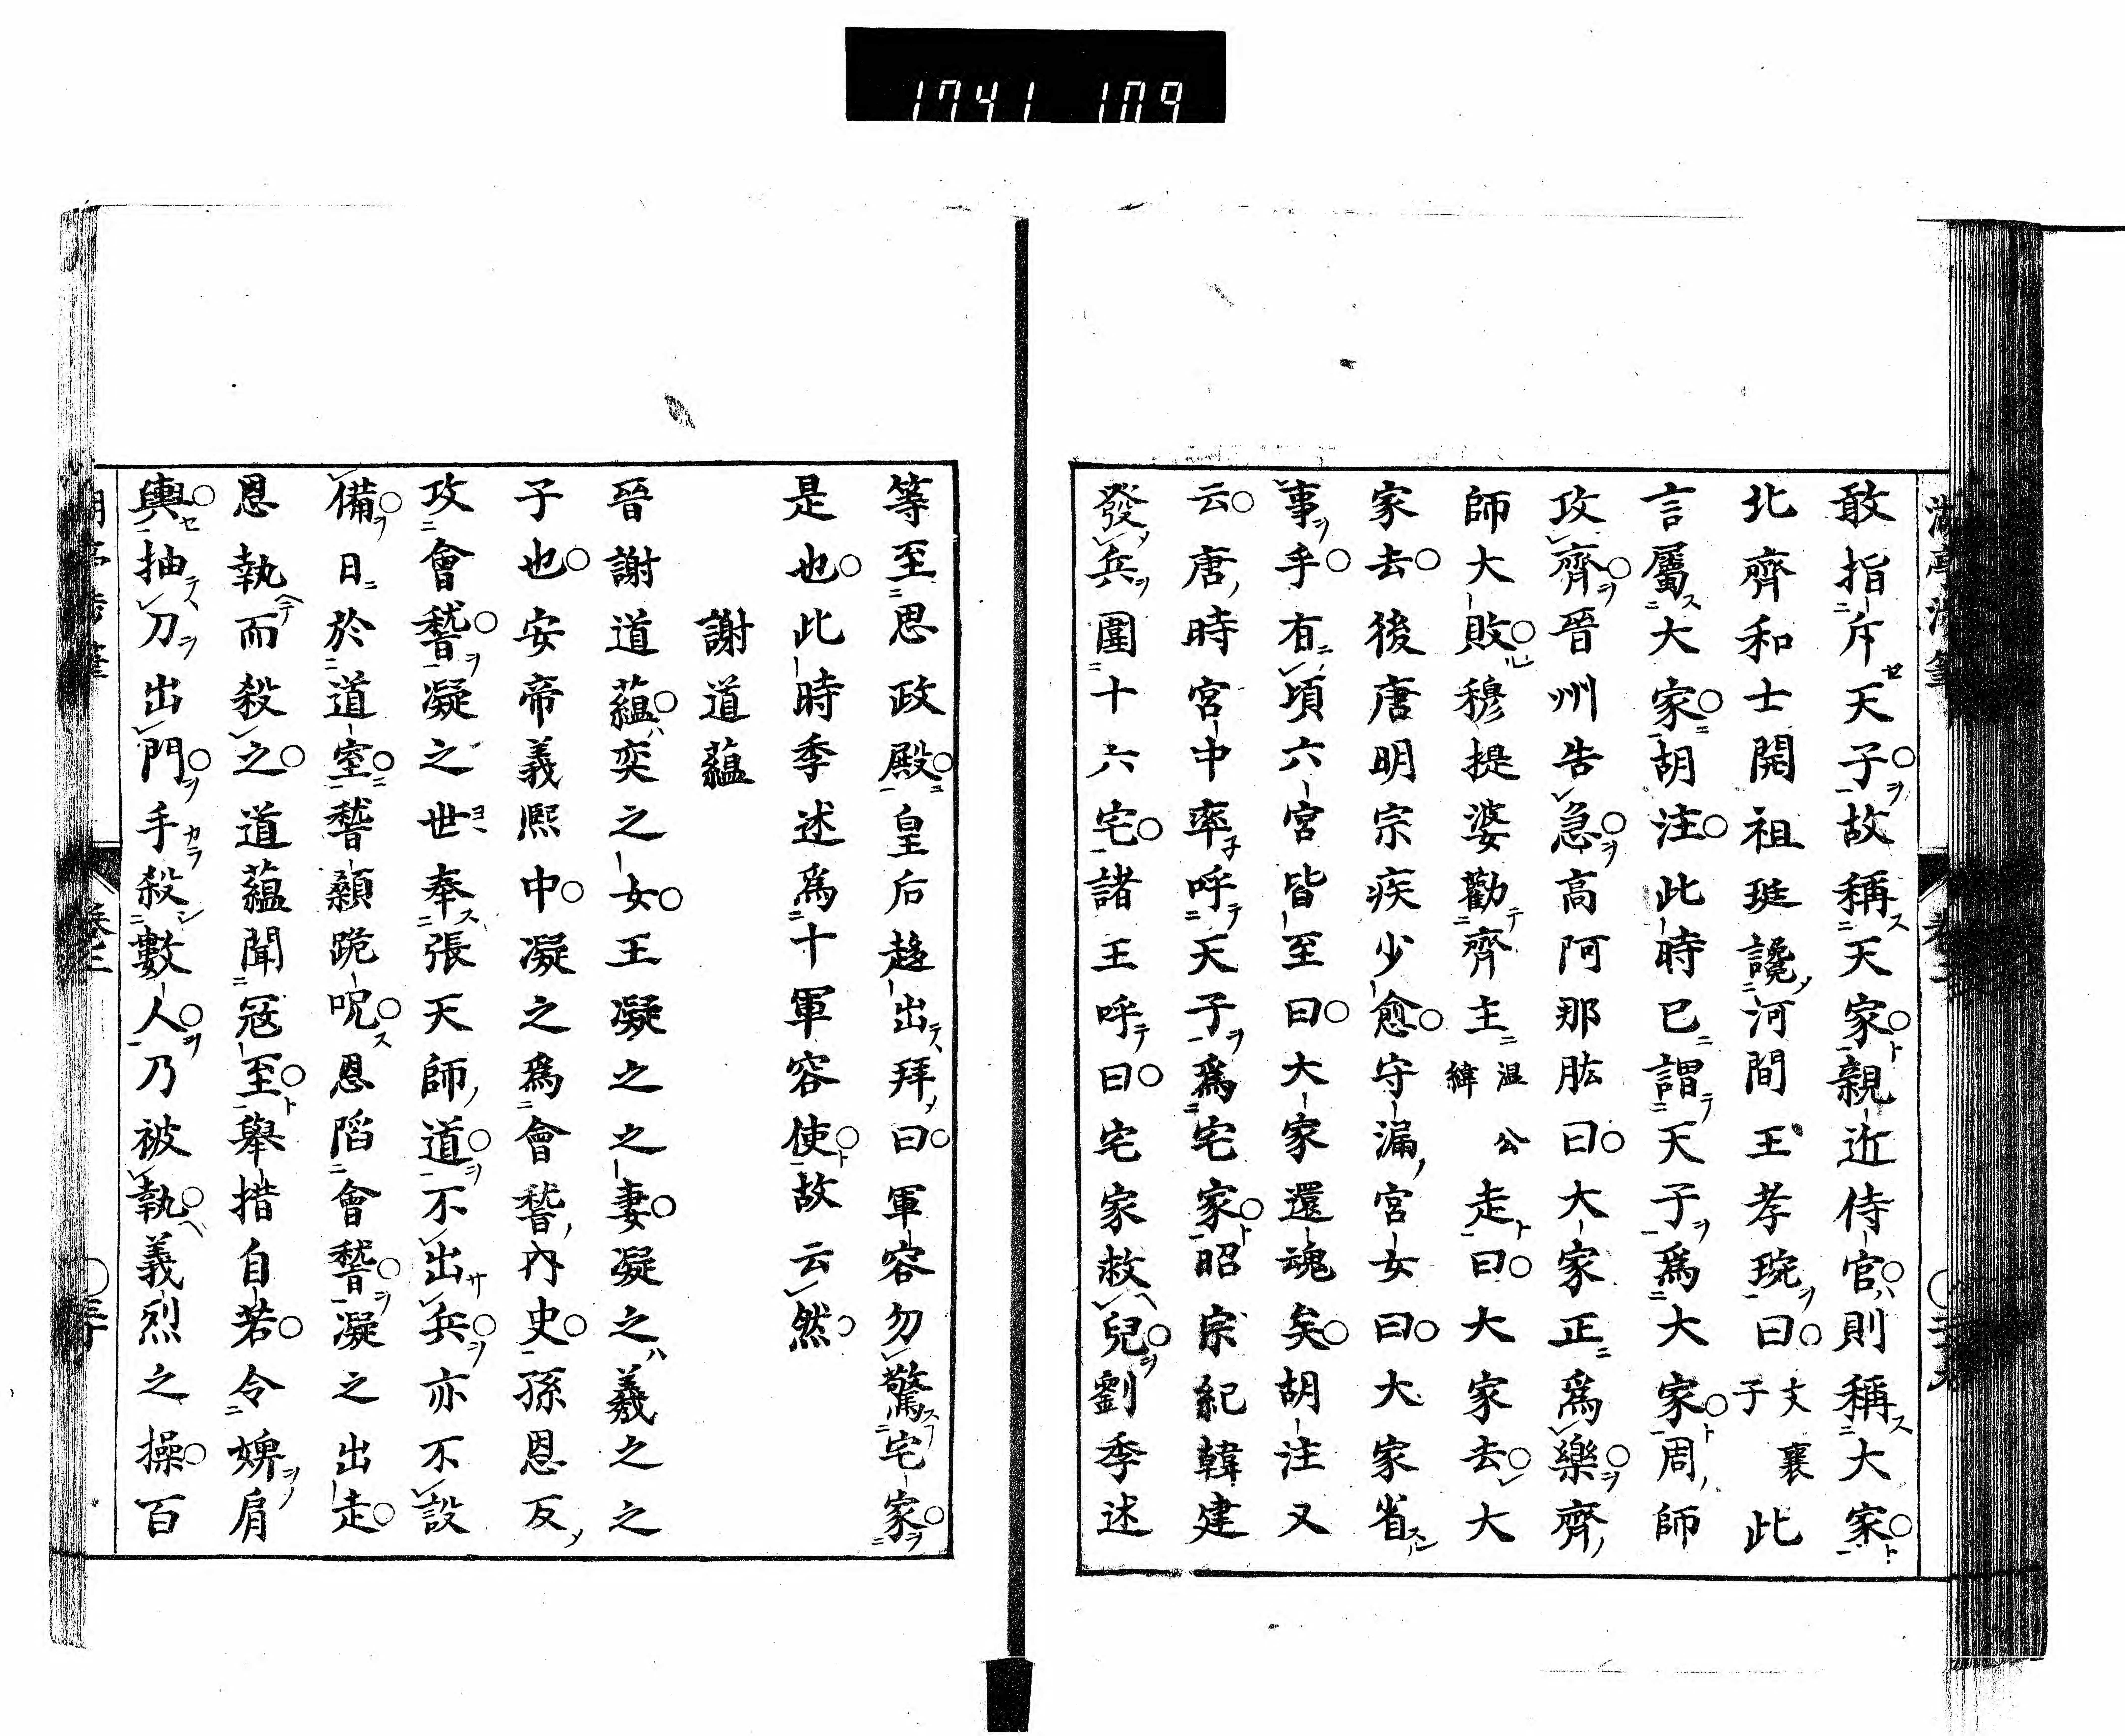 1741 109
敢指斥天子故稱天家親近侍官則稱大家
北齊和士開祖珽讒河間王孝琬曰文襄子此
言屬大家胡注此時已謂天子爲大家周師
攻齊晉州告急高阿那肱曰大家正爲樂齊
師大敗穆提婆勸齊主温公緯走曰大家去大
家去後唐明宗疾少愈守漏宮女曰大家省
事乎有頃六宮皆至曰大家還魂矣胡注又
云唐時宮中率呼天子爲宅家昭宗紀韓建
發兵圍十六宅諸王呼曰宅家救兒劉季述
等至思政殿皇后趍出拜曰軍容勿驚宅家
是也此時季述爲十軍容使故云然
謝道藴
晉謝道藴奕之女王凝之之妻凝之羲之之
子也安帝義熙中凝之爲會嵇內史孫恩反
攻會嵇凝之世奉張天師道不出兵亦不設
備日於道室嵇顙跪呪恩陷會嵇凝之出走
恩執而殺之道藴聞寇至舉措自若令婢肩
輿抽刀出門手殺數人乃被執義烈之操百